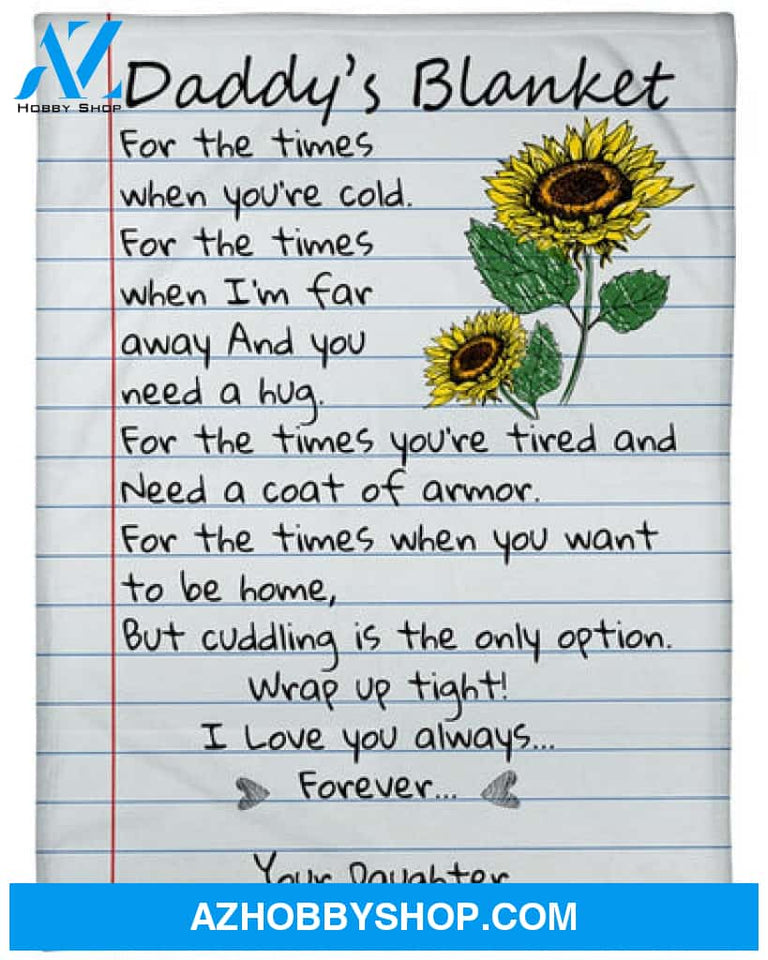 AZ
HOBBY SHOP
Daddy's Blanket
For the times
when you're cold.
For the times
when I'm far
away And you
need a hug.
For the times you're tired and
Need a coat of armor.
For the times when you want
to be home,
But cuddling is the only option.
Wrap up tight!
I Love you always...
Forever...
Your Daughter
AZHOBBYSHOP.COM